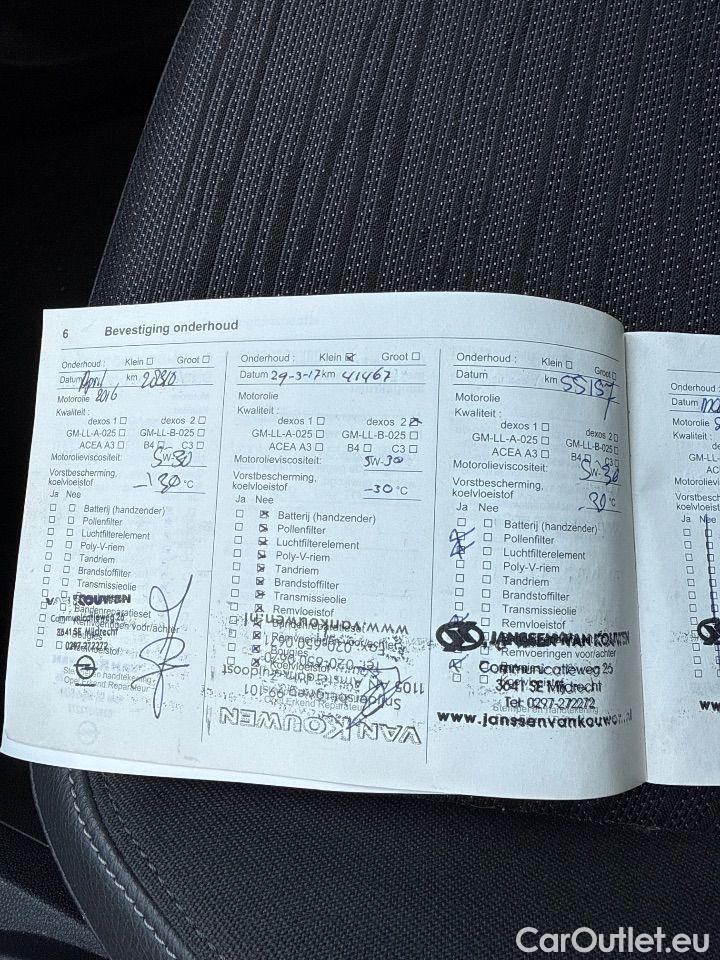 6 Bevestiging onderhoud
Onderhoud : Klein Groot
Datum April 2016 km 28810
Motorolie
Kwaliteit :
dexos 1 dexos 2
GM-LL-A-025 GM-LL-B-025
ACEA A3 B4 C3
Motorolieviscositeit: 5W-30
Vorstbescherming,
koelvloeistof -30 °C
Ja Nee
Batterij (handzender)
Pollenfilter
Luchtfilterelement
Poly-V-riem
Tandriem
Brandstoffilter
Transmissieolie
VAN KOUWEN
Bandenreparatieset
Communicatieweg 26
Remvoeringen voor/achter
3641 SE Mijdrecht
Bougies
0297-272272
Koelvloeistof
Stempel en handtekening
Opel Erkend Reparateur
Onderhoud : Klein Groot
Datum 29-3-17 km 41467
Motorolie
Kwaliteit :
dexos 1 dexos 2
GM-LL-A-025 GM-LL-B-025
ACEA A3 B4 C3
Motorolieviscositeit: 5W-30
Vorstbescherming,
koelvloeistof -30 °C
Ja Nee
Batterij (handzender)
Pollenfilter
Luchtfilterelement
Poly-V-riem
Tandriem
Brandstoffilter
Transmissieolie
Remvloeistof
www.vankouwen.nl
Bandenreparatieset
Remvoeringen voor/achter
Bougies
Koelvloeistof
Opel Erkend Reparateur
VAN KOUWEN
Onderhoud : Klein Groot
Datum km 55157
Motorolie
Kwaliteit :
dexos 1 dexos 2
GM-LL-A-025 GM-LL-B-025
ACEA A3 B4 C3
Motorolieviscositeit: 5W-30
Vorstbescherming,
koelvloeistof -30 °C
Ja Nee
Batterij (handzender)
Pollenfilter
Luchtfilterelement
Poly-V-riem
Tandriem
Brandstoffilter
Transmissieolie
Remvloeistof
JANSSEN VAN KOUWEN
Remvoeringen voor/achter
Communicatieweg 26
3641 SE Mijdrecht
Tel: 0297-272272
Stempel en handtekening
www.janssenvankouwen.nl
Onderhoud :
Datum
Motorolie
Kwaliteit :
GM-LL-A
ACEA
Motorolievisc
Vorstbesch
koelvloeist
Ja Nee
CarOutlet.eu